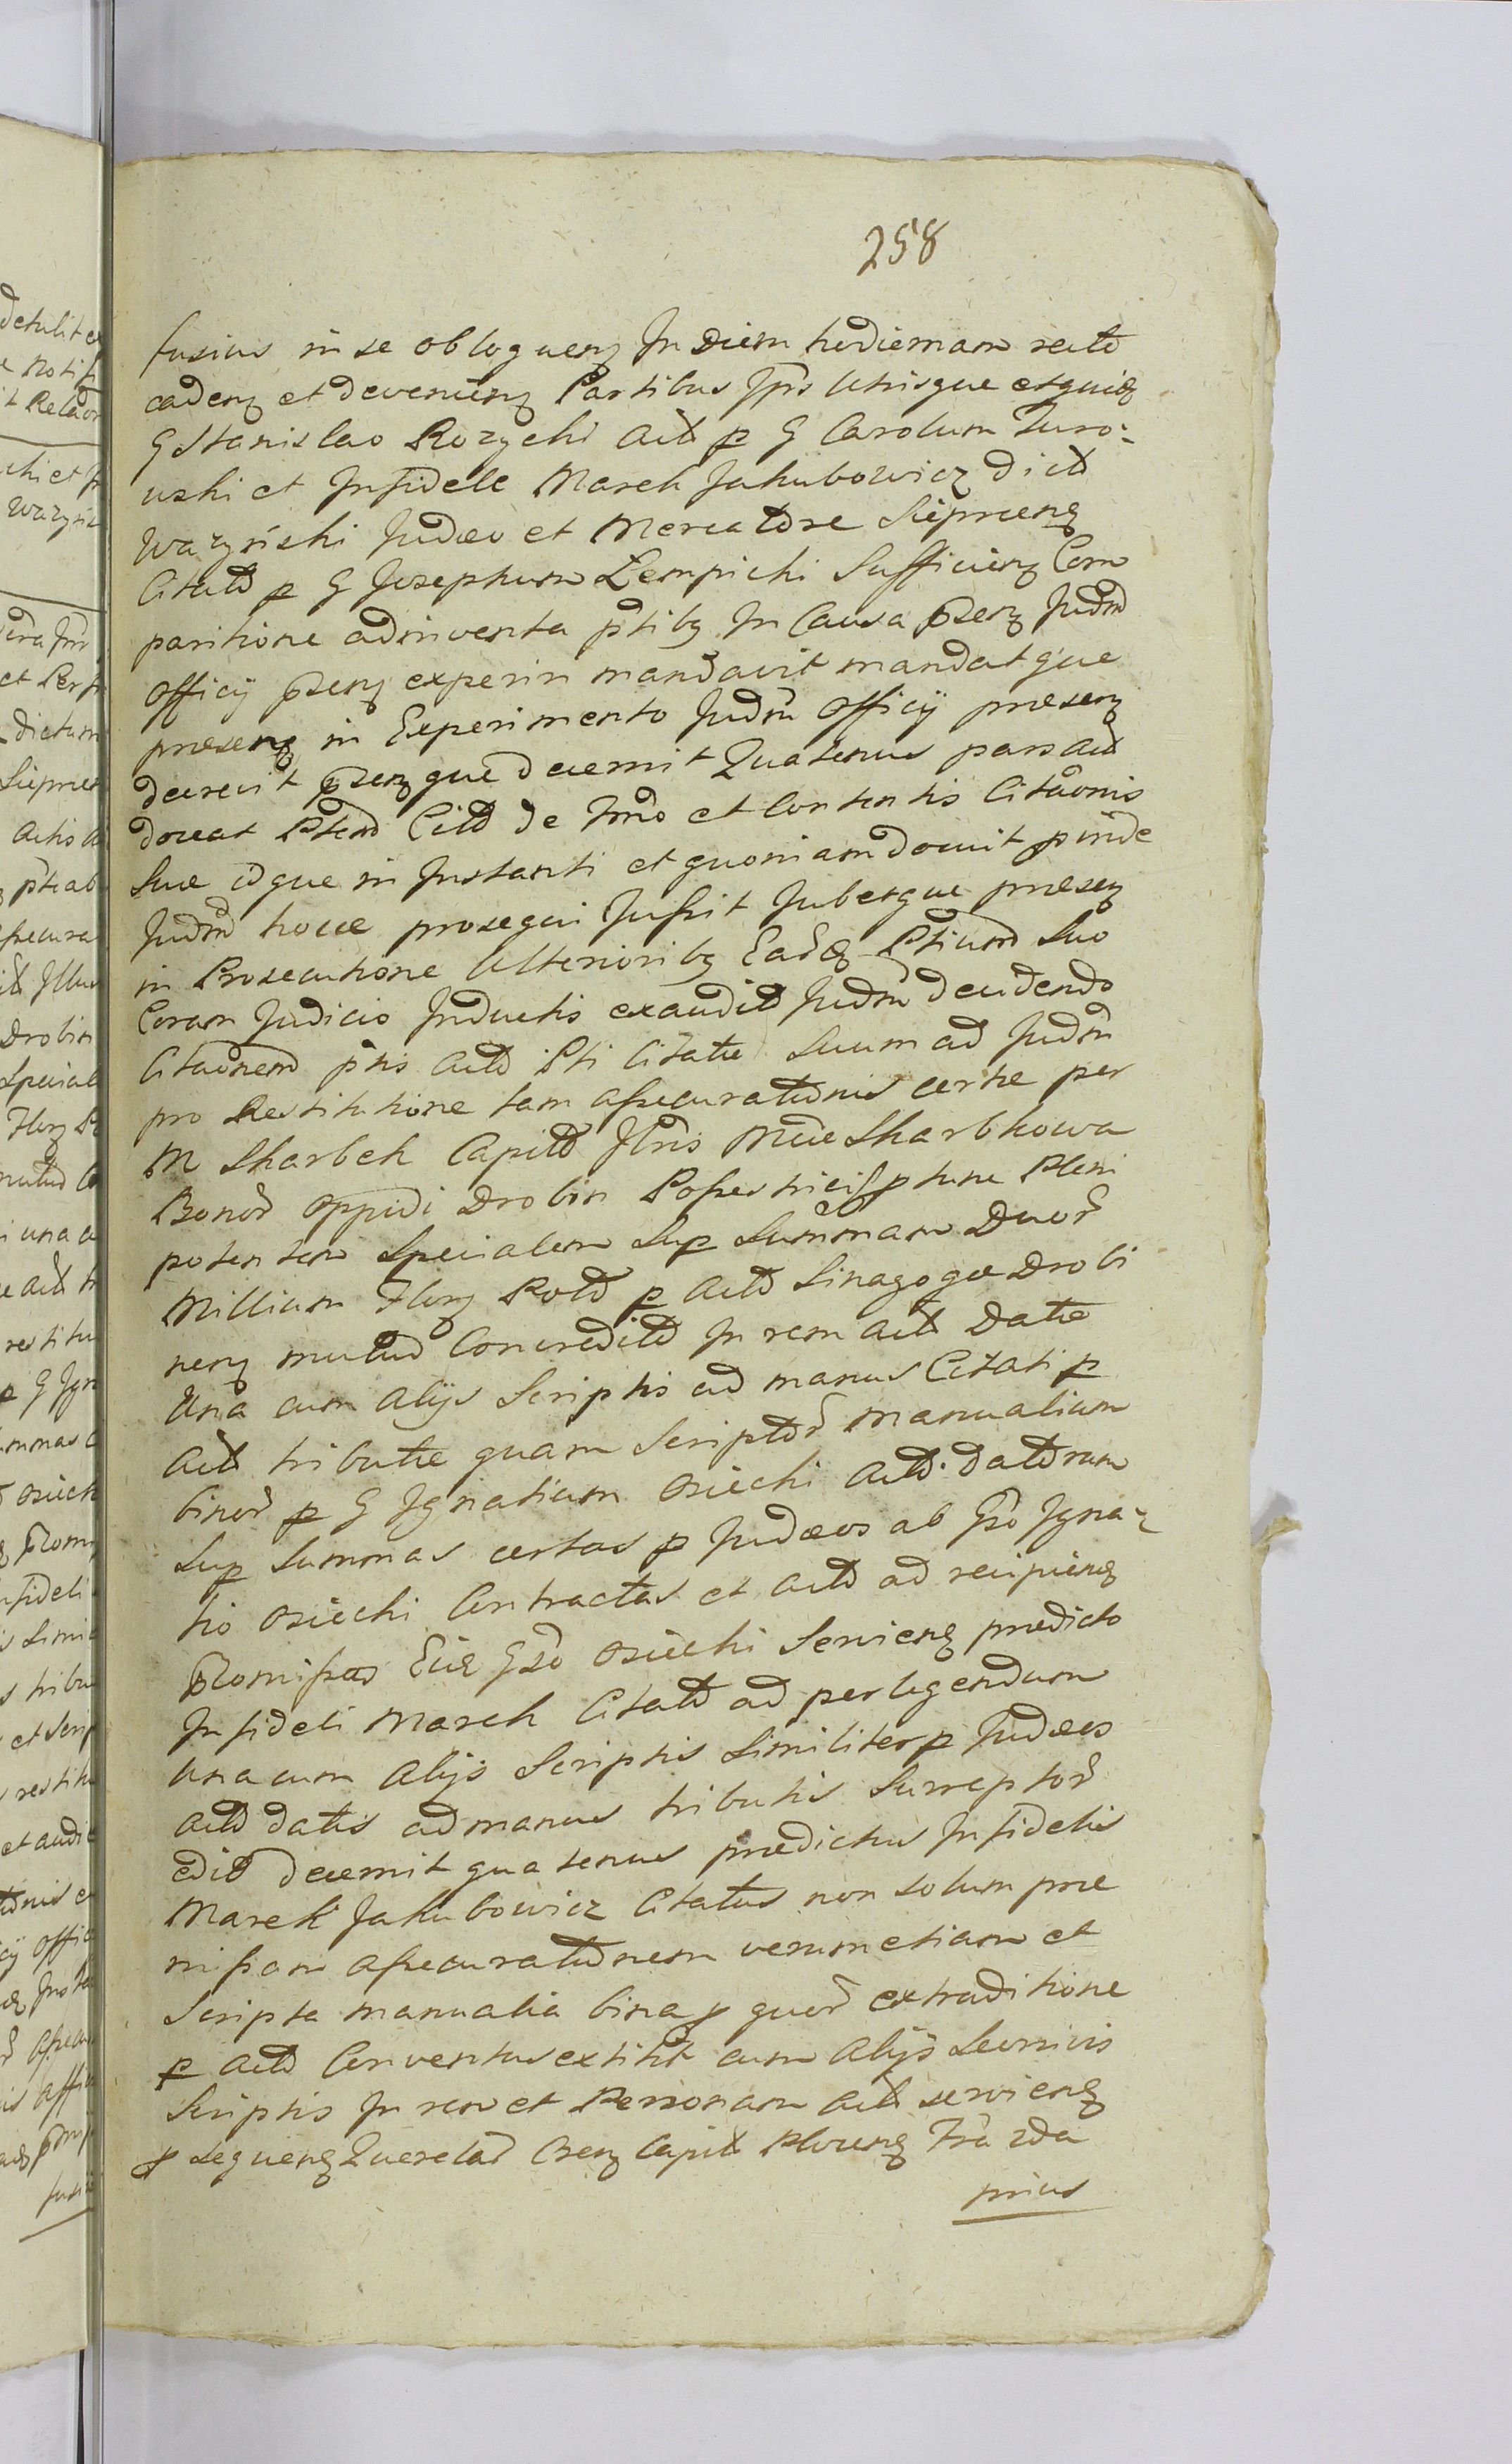 258
fusius in se obloquenꝫ In Diem hodiernam recto
cadenꝫ et devenienꝫ Partibus Ipis Utrisque etquidꝫ
G Stanislao Rozycki Act p G Carolum Turo-
uski et Infidele Marek Jakubowicz dict
Wazynski Judæo et Mercatore Sieprcenꝫ
Citato p G Josephum Lempicki Sufficienꝫ Com
paritione adinventa ptibꝫ In Causa psenꝫ Judm
Officij psenꝫ experiri mandavit mandatque
præsenꝫ in Experimento Judm Officij præsenꝫ
decrevit psenꝫque decernit Quatenus pars act
doceat Ptem Citt de Tmo et Contentis Citaonis
Suæ idque in Instanti et quoniam docuit pinde
Judm hocce prosequi Jussit Jubetque præsenꝫ
in Prosecutione Ulterioribꝫ Eardꝫ Ptium Suo
Coram Judicio Inductis exaudit Judm decidendo
Citaonem ptis Act Pti Citatæ Suum ad Judm
pro Restitutione tam assecurationis certæ per
M Skarbek Capit Ilris Mcæ Skarbkowa
Bonor Oppidi Drobin Possestricis p tunc Pleni
potentem Specialem Sup Summam Duor
Millium Florꝫ Polo p Act Sinagogæ Drobi
nenꝫ mutuo Concredito In rem Act Datæ
Una cum Alijs Scriptis ad manus Citati p
Act tributæ quam Scriptor manualium
binor p G Ignatium Osiecki Act. datorum
Sup Summas certas p Judæos ab Gso Igna-
tio Osiecki Contractas et Act ad recipienꝫ
Promissas Eidꝫ Gso Osiecki Servienꝫ prædicto
Infideli Marek Citato ad perlegendum
Una cum Alijs Scriptis Similiter p Judæos
Act datis ad manus tributis Surreptor
edit decernit quatenus prædictus Infidelis
Marek Jakubowicz Citatus non solum præ
missam assecurationem verum etiam et
Scripta manualia bina p quor extraditione
p Act Conventus extitit cum Alijs Seorsivis
Scriptis In rem et Personam Act servienꝫ
p sequenꝫ Querelar Crenꝫ Capit Plocenꝫ Fra 2da
prius